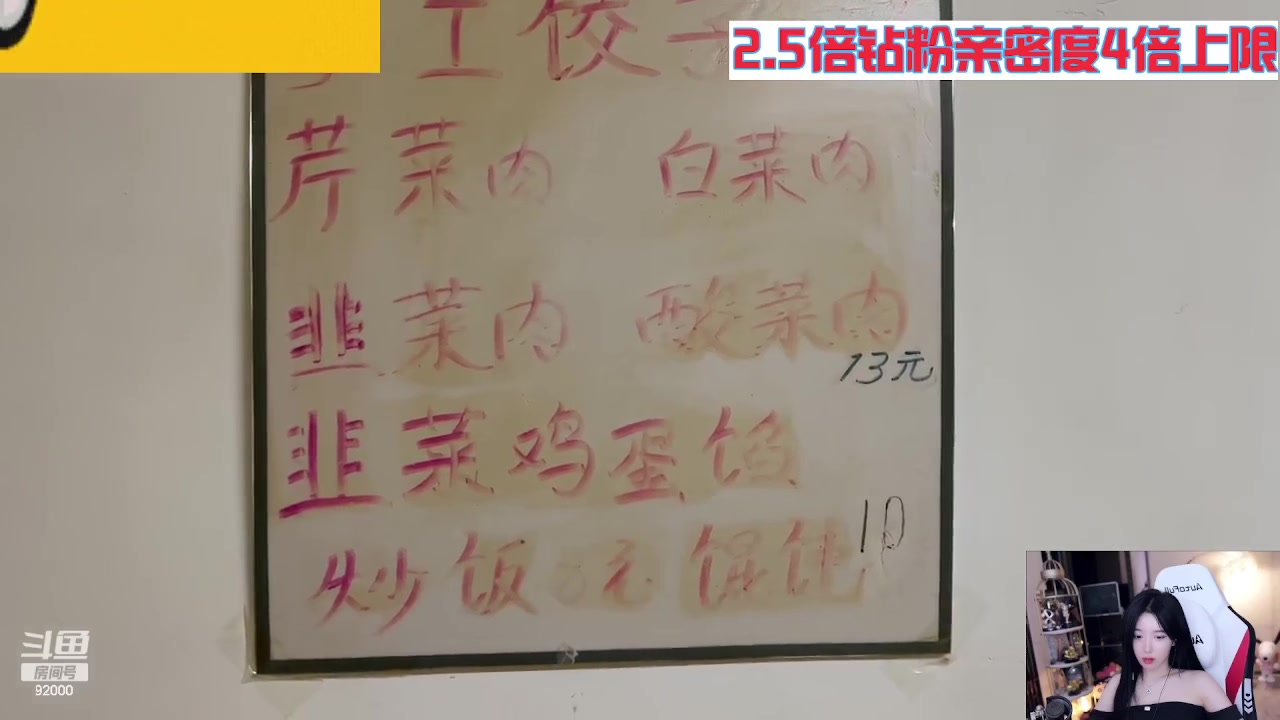 2.5倍钻粉亲密度4倍上限
手工饺子
芹菜肉 白菜肉
韭菜肉 酸菜肉
13元
韭菜鸡蛋馅
10
炒饭 元 馄饨
斗鱼
房间号
92000
AutoFull